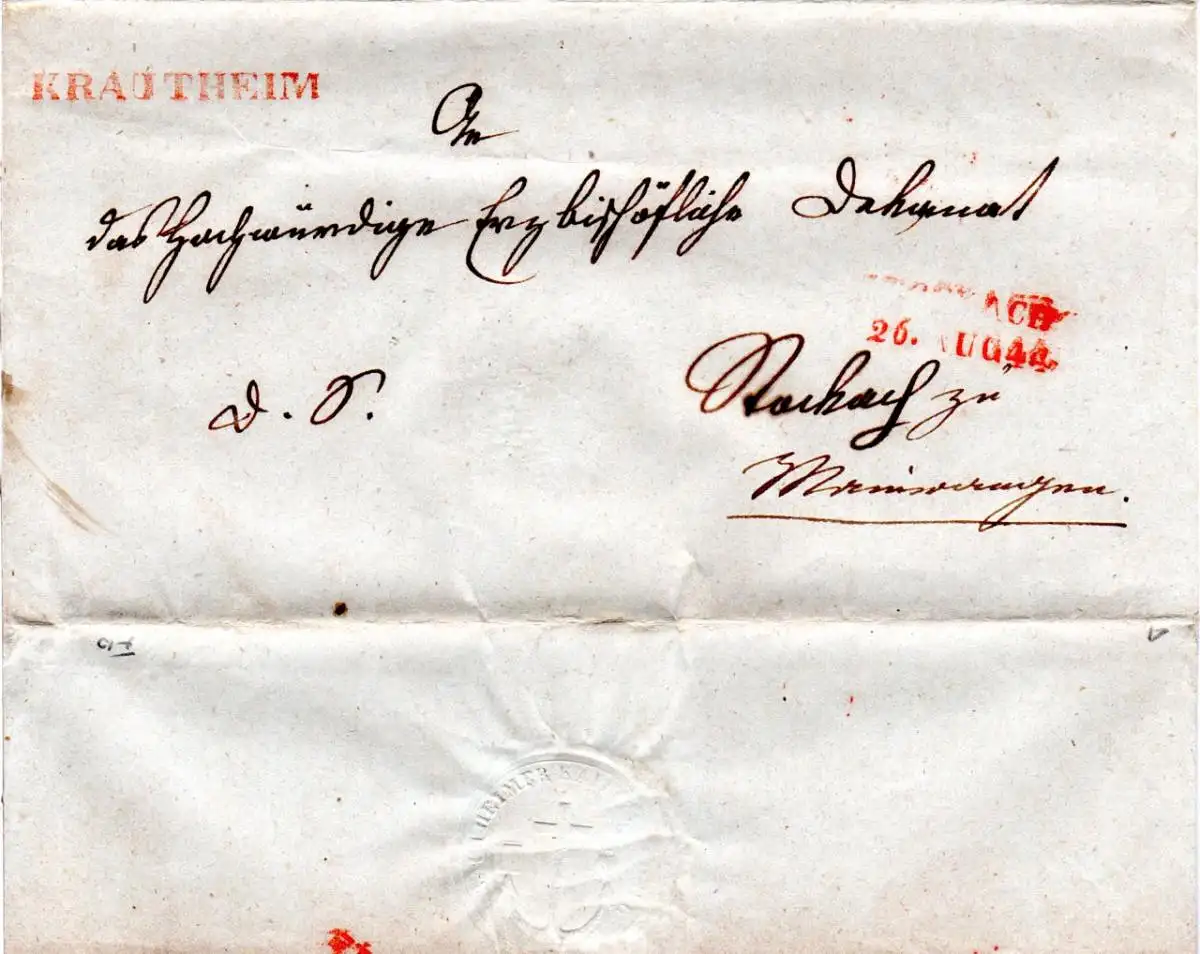 KRAUTHEIM
An
das Hochwürdige Erzbischöfliche Dekanat
ACH
26. AUG 44.
D. S. Stockach zu
Mainwangen.
HEIMER KA